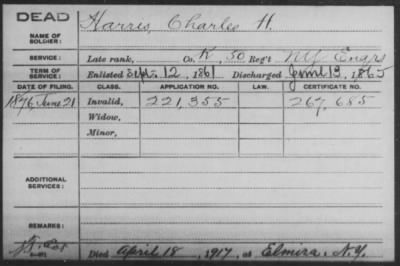 DEAD
Harris, Charles H.
NAME OF
SOLDIER:
SERVICE:
Late rank, Co. K, 50 Reg't N.Y. Engrs
TERM OF
SERVICE:
Enlisted Sept. 12, 1861 Discharged June 13, 1865
DATE OF FILING. CLASS. APPLICATION NO. LAW. CERTIFICATE NO.
1876, June 21 Invalid, 221,355 267,685
Widow,
Minor,
ADDITIONAL
SERVICES:
REMARKS:
Died April 18, 1917, at Elmira, N.Y.